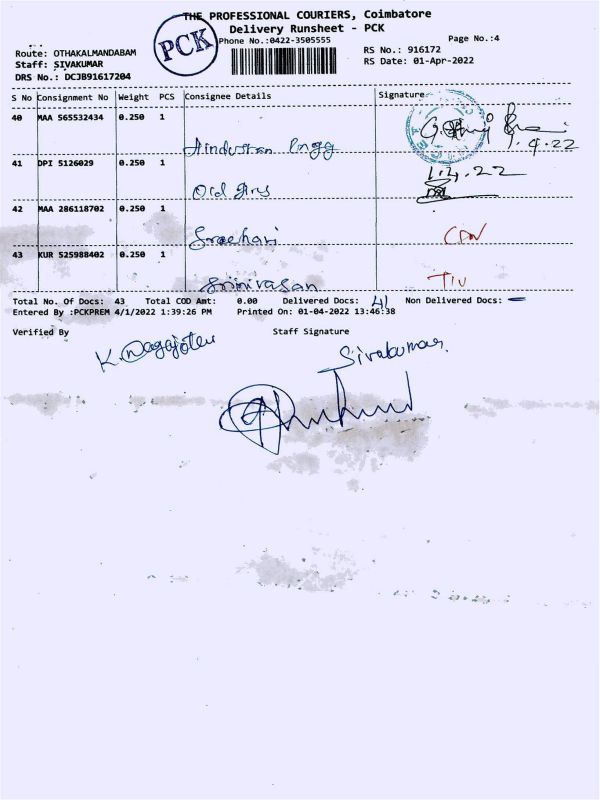 THE PROFESSIONAL COURIERS, Coimbatore
Delivery Runsheet - PCK
PCK
Phone No.:0422-3505555
Page No.:4
Route: OTHAKALMANDABAM
RS No.: 916172
Staff: SIVAKUMAR
RS Date: 01-Apr-2022
DRS No.: DCJB91617204
S No Consignment No Weight PCS Consignee Details Signature
40 MAA 565532434 0.250 1
Hindustan Engg
9.4.22
41 DPI 5126029 0.250 1
1.4.22
Old
42 MAA 286118702 0.250 1
Sreehari
43 KUR 525988402 0.250 1
Srinivasan
Total No. Of Docs: 43 Total COD Amt: 0.00 Delivered Docs: 41 Non Delivered Docs: –
Entered By :PCKPREM 4/1/2022 1:39:26 PM Printed On: 01-04-2022 13:46:38
Verified By Staff Signature
Sivakumar